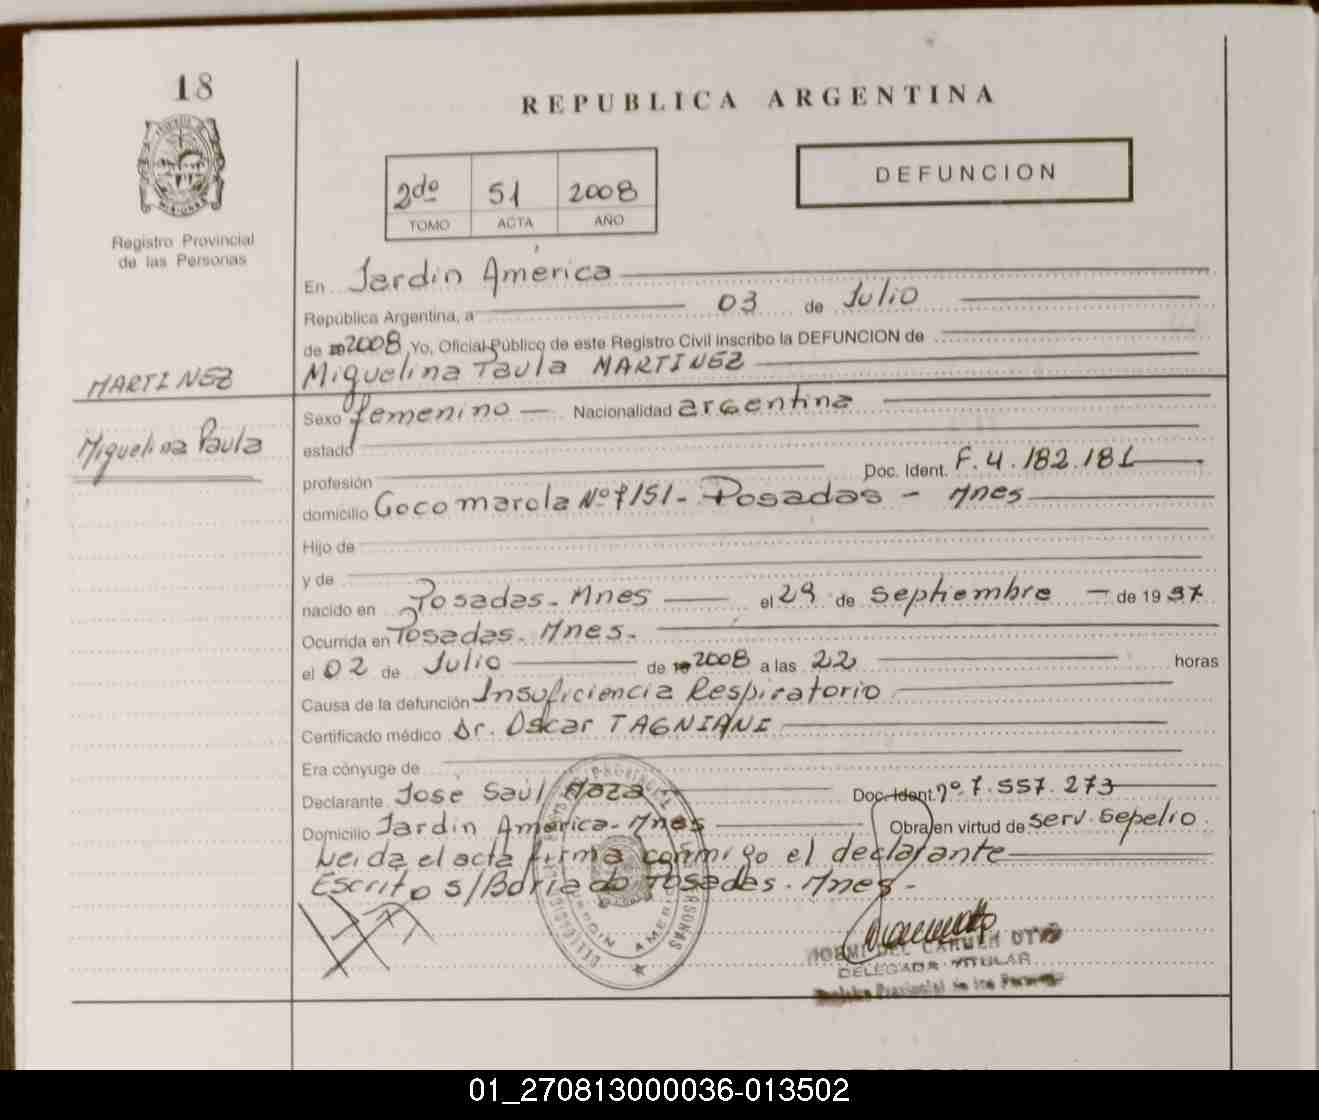 18
REPUBLICA ARGENTINA
2do 51 2008
TOMO ACTA AÑO
DEFUNCION
Registro Provincial
de las Personas
En Jardin América
República Argentina, a 03 de Julio
de 2008 Yo, Oficial Público de este Registro Civil inscribo la DEFUNCION de
MARTINEZ
Miguelina Paula MARTINEZ
Miguelina Paula
Sexo femenino Nacionalidad argentina
estado
profesión Doc. Ident. F. 4.182.181
domicilio Cocomarola Nº 7151 - Posadas - Mnes
Hijo de
y de
nacido en Posadas - Mnes el 29 de septiembre de 19 37
Ocurrida en Posadas - Mnes.
el 02 de Julio de 2008 a las 22 horas
Causa de la defunción Insuficiencia Respiratorio
Certificado médico Dr. Oscar TAGNIANI
Era cónyuge de
Declarante Jose Saúl Maza Doc. Ident. nº 7.557.273
Domicilio Jardin América - Mnes Obra en virtud de serv. sepelio.
Leida el acta firma conmigo el declarante
Escrito s/Borrado Posadas - Mnes -
JARDIN AMERICA
DEL CARMEN
DELEGADA TITULAR
Provincial de las Personas
01_270813000036-013502